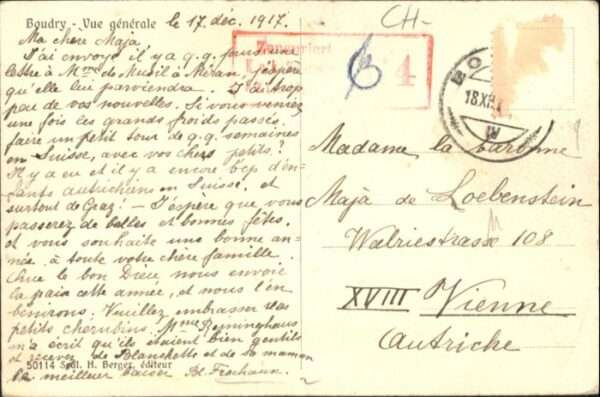 Boudry - Vue générale
le 17. déc. 1917.
Ma chère Maja
J'ai envoyé il y a q.q. jours une
lettre à Mme de Musil à Méran, j'espère
qu'elle lui parviendra. J'ai trop
peu de vos nouvelles. Si vous veniez
une fois les grands froids passés
faire un petit tour de q.q. semaines
en Suisse, avec vos chers petits?
Il y a eu et il y a encore bcp d'en-
fants autrichiens en Suisse, et
surtout de Graz! - J'espère que vous
passerez de belles et bonnes fêtes,
et vous souhaite une bonne an-
née à toute votre chère famille.
Que le bon Dieu nous envoie
la paix cette année, et nous l'en
bénirons. Veuillez embrasser vos
petits chérubins. Mme Reininghaus
m'a écrit qu'ils étaient bien gentils
et recevez de Blanchette et de sa maman
le meilleur baiser
50114 H. Berger, éditeur
CH-
Zensuriert
4
18 XII
Madame la baronne
Maja de Loebenstein
Walriestrasse 108
XVIII Vienne
Autriche